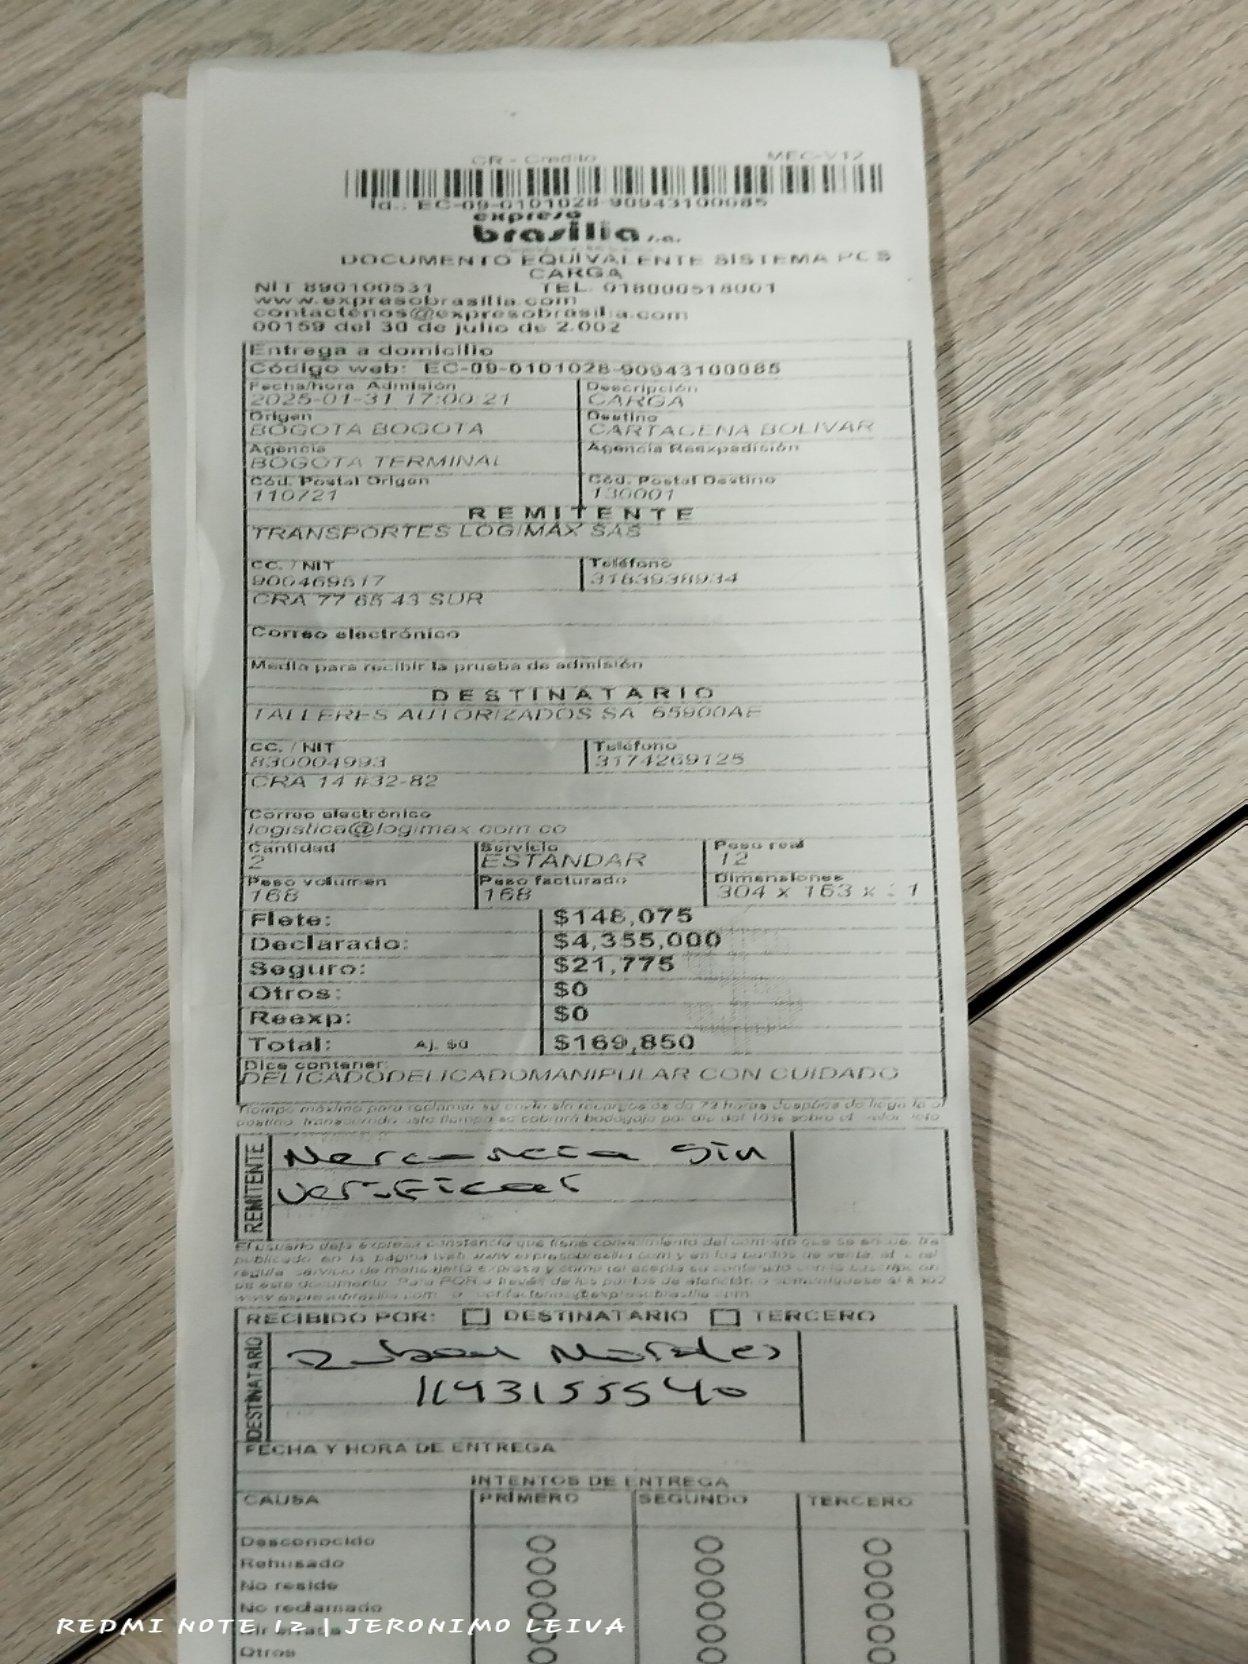 CR - Crédito MEC-V12
Id.: EC-09-0101028-90943100085
expreso
brasilia s.a.
DOCUMENTO EQUIVALENTE SISTEMA PCS
CARGA
NIT 890100531 TEL. 018000518001
www.expresobrasilia.com
contactenos@expresobrasilia.com
00159 del 30 de julio de 2.002
Entrega a domicilio
Código web: EC-09-0101028-90943100085
Fecha/hora Admisión Descripción
2025-01-31 17:00:21 CARGA
Origen Destino
BOGOTA BOGOTA CARTAGENA BOLIVAR
Agencia Agencia Reexpedición
BOGOTA TERMINAL
Cód. Postal Origen Cód. Postal Destino
110721 130001
REMITENTE
TRANSPORTES LOGIMAX SAS
CC. / NIT Teléfono
900469517 3183938934
CRA 77 65 43 SUR
Correo electrónico
Medio para recibir la prueba de admisión
DESTINATARIO
TALLERES AUTORIZADOS SA 65900AE
CC. / NIT Teléfono
830004993 3174269125
CRA 14 #32-82
Correo electrónico
logistica@logimax.com.co
Cantidad Servicio Peso real
2 ESTANDAR 12
Peso volumen Peso facturado Dimensiones
168 168 304 x 163 x
Flete: $148,075
Declarado: $4,355,000
Seguro: $21,775
Otros: $0
Reexp: $0
Total: Aj. $0 $169,850
Dice contener:
DELICADODELICADOMANIPULAR CON CUIDADO
Tiempo máximo para reclamar su envío sin recargos es de 72 horas después de llegar a
destino, transcurrido este tiempo se cobrará bodegaje por día del 10% sobre el valor
REMITENTE
Mercancia Sin
verificar
El usuario deja expresa constancia que tiene conocimiento del contrato que se encuentra
publicado en la página web www.expresobrasilia.com y en los puntos de venta, el cual
regula servicio de mensajería expresa y como tal acepta su contenido con la suscripción
de este documento. Para PQR a través de los puntos de atención o comuníquese al
www.expresobrasilia.com o contactenos@expresobrasilia.com
RECIBIDO POR: DESTINATARIO TERCERO
DESTINATARIO
Ruben Morales
1143155540
FECHA Y HORA DE ENTREGA
INTENTOS DE ENTREGA
CAUSA PRIMERO SEGUNDO TERCERO
Desconocido
Rehusado
No reside
No reclamado
Otros
REDMI NOTE 12 | JERONIMO LEIVA